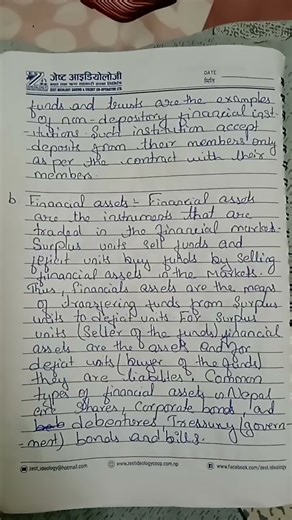 जेष्ट आइडियोलोजी
ZEST IDEOLOGY SAVING & CREDIT CO-OPERATIVE LTD.
DATE
मिति
funds and trusts are the examples
of non-depository financial inst-
-itutions. Such institution accept
deposits from their members only
as per the contract with their
members.
b Financial assets:- Financial assets
are the instruments that are
traded in the financial market.
Surplus units sell funds and
deficit units buy funds by selling
financial assets in the markets.
Thus, financials assets are the means
of transfering funds from surplus
units to deficit units For surplus
units (seller of the funds) financial
assets are the assets and for
deficit units (buyer of the funds)
they are liabilities. Common
types of financial assets in Nepal
are shares, corporate bonds, and
debentures, Treasury (govern-
-ment) bonds and bills.
zest_ideology@hotmail.com
www.zestideologycoop.com.np
www.facebook.com/zest.ideology